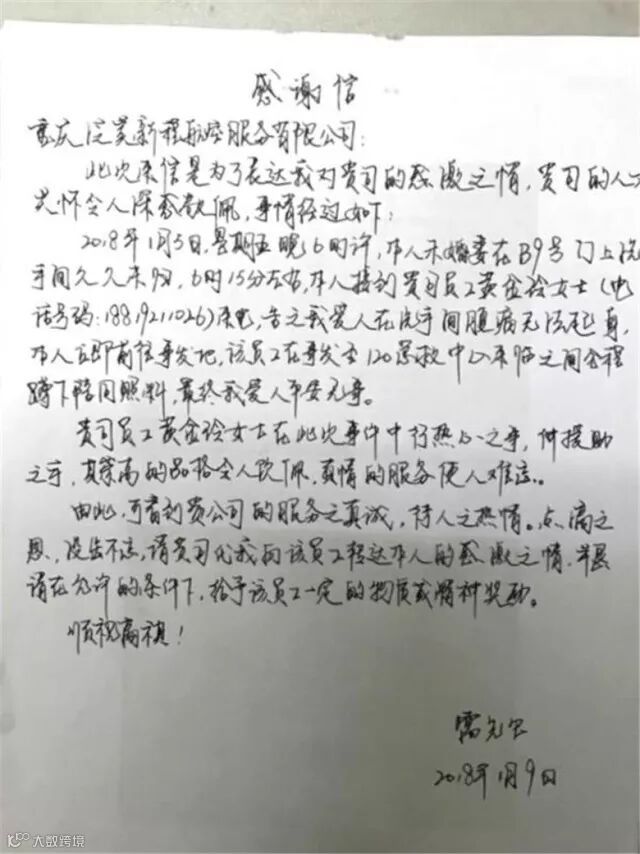 感谢信
重庆泛美新程航空服务有限公司：
此次来信是为了表达我对贵司的感激之情，贵司的人文
关怀令人深感敬佩，事情经过如下：
2018年1月5日，星期五晚6时许，本人未婚妻在B9号门上洗
手间久久未归，6时15分左右，本人接到贵司员工黄金玲女士（电
话号码：18819211026）来电，告之我爱人在洗手间腹痛无法起身，
本人立即前往事发地，该员工在事发至120急救中心来临之间全程
蹲下陪同照料，最终我爱人平安无事。
贵司员工黄金玲女士在此次事件中行热心之事，伸援助
之手，其崇高的品格令人钦佩，真情的服务使人难忘。
由此，可看到贵公司的服务之真诚，待人之热情。点滴之
恩，没齿不忘，请贵司代我向该员工转达本人的感激之情，并恳
请在允许的条件下，给予该员工一定的物质或精神奖励。
顺祝商祺！
2018年1月9日
大数跨境